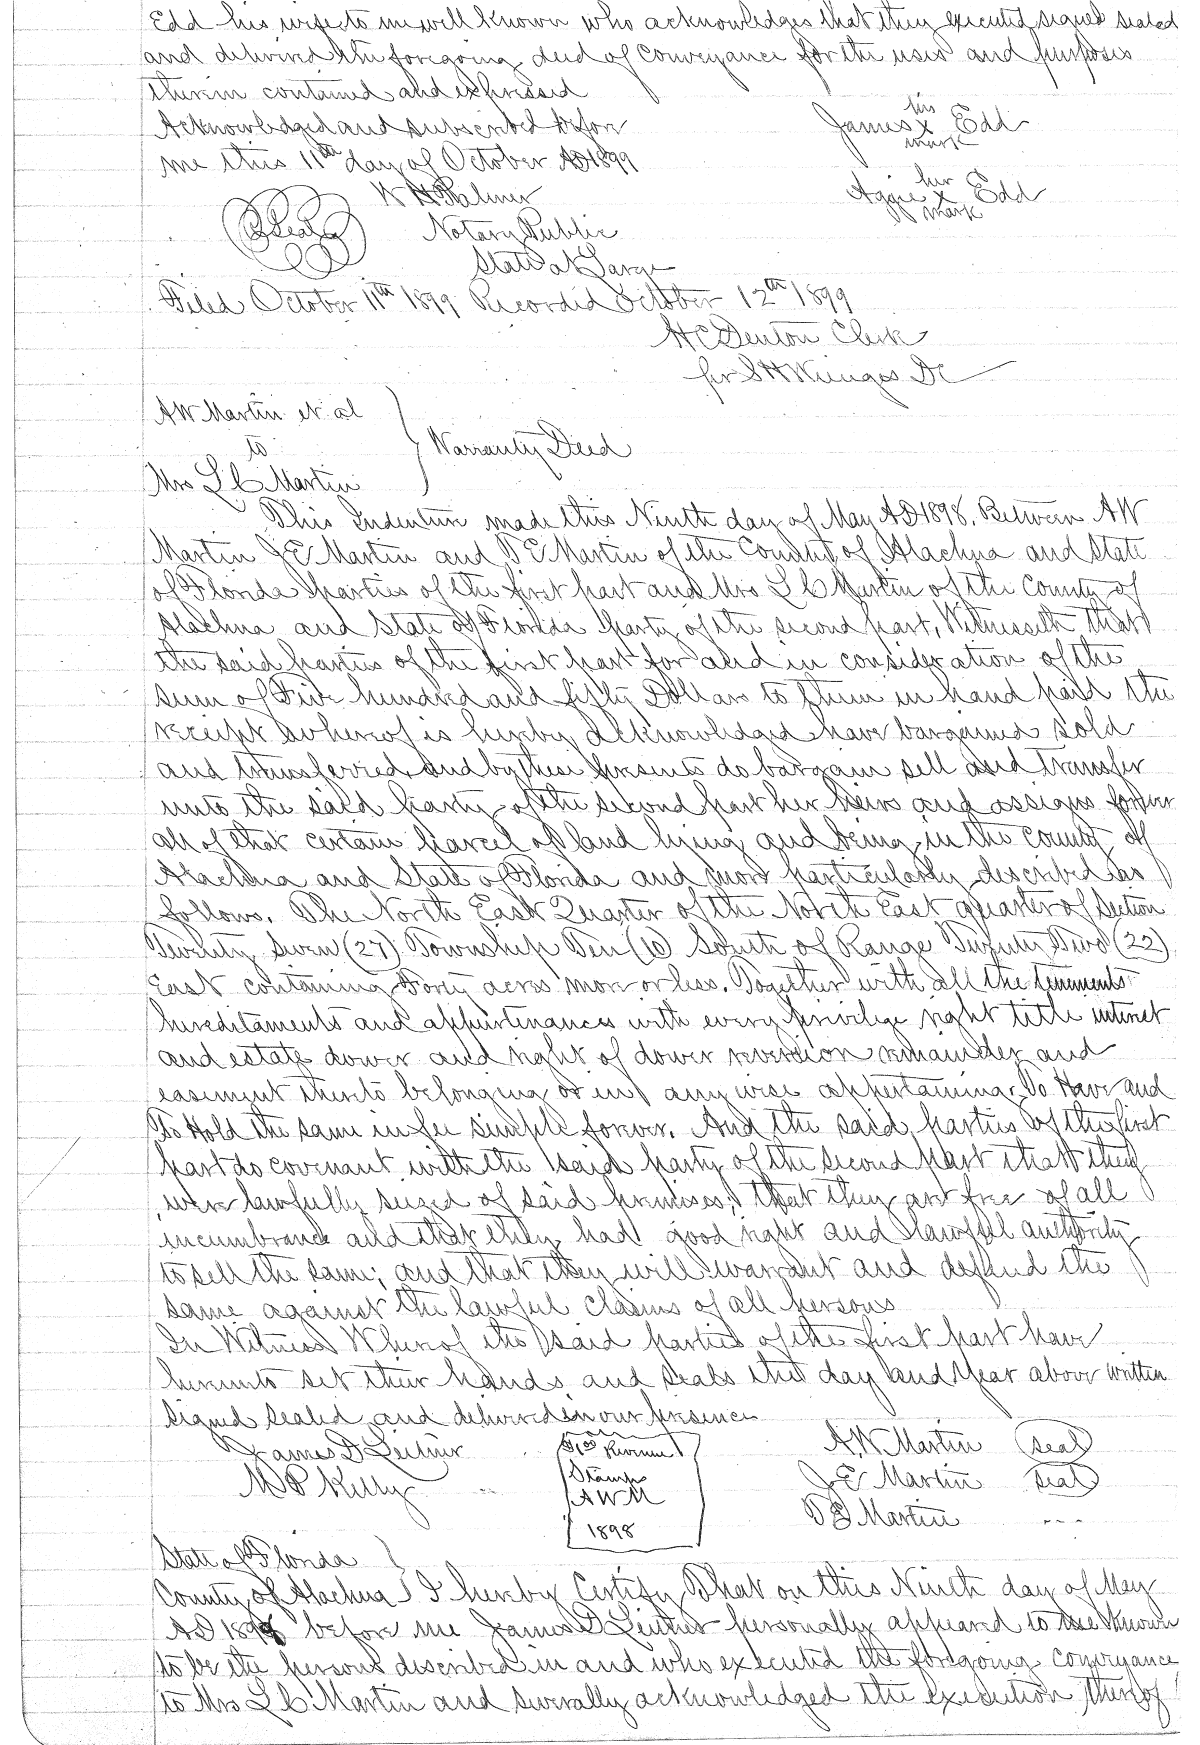 Edd his wife to me well known who acknowledges that they executed signed sealed
and delivered the foregoing deed of conveyance for the uses and purposes
therein contained and expressed
Acknowledged and subscribed before
me this 11th day of October AD 1899
James his x mark Edd
Aggie her x mark Edd
W H Palmer
(Seal) Notary Public
State at Large
Filed October 11th 1899 Recorded October 12th 1899
H C Denton Clerk
per S H Wienges DC
A W Martin et al
to
Mrs L C Martin
Warranty Deed
This Indenture made this Ninth day of May AD 1898. Between A W
Martin J E Martin and E Martin of the County of Alachua and State
of Florida parties of the first part and Mrs L C Martin of the County of
Alachua and State of Florida party of the second part, Witnesseth that
the said parties of the first part for and in consideration of the
sum of Five hundred and fifty Dollars to them in hand paid the
receipt whereof is hereby acknowledged have bargained sold
and transferred and by these presents do bargain sell and transfer
unto the said party of the second part her heirs and assigns forever
all of that certain parcel of land lying and being in the County of
Alachua and State of Florida and more particularly described as
follows. The North East Quarter of the North East quarter of Section
Twenty Seven (27) Township Ten (10) South of Range Twenty Two (22)
East containing Forty acres more or less. Together with all the tenements
hereditaments and appurtenances with every privilege right title interest
and estate dower and right of dower reversion remainder and
easement thereto belonging or in any wise appertaining. To Have and
To Hold the same in fee simple forever. And the said parties of the first
part do covenant with the said party of the second part that they
were lawfully seized of said premises; that they are free of all
incumbrance and that they had good right and lawful authority
to sell the same; and that they will warrant and defend the
same against the lawful claims of all persons
In Witness Whereof the said parties of the first part have
hereunto set their hands and seals the day and year above written
signed sealed and delivered in our presence
James D Leitner
W P Kelly
$1.00 Revenue
Stamp
A W M
1898
A W Martin (seal)
J E Martin (seal)
E Martin ---
State of Florida
County of Alachua I hereby Certify That on this Ninth day of May
AD 1898 before me James D Leitner personally appeared to me known
to be the persons described in and who executed the foregoing conveyance
to Mrs L C Martin and severally acknowledged the execution thereof